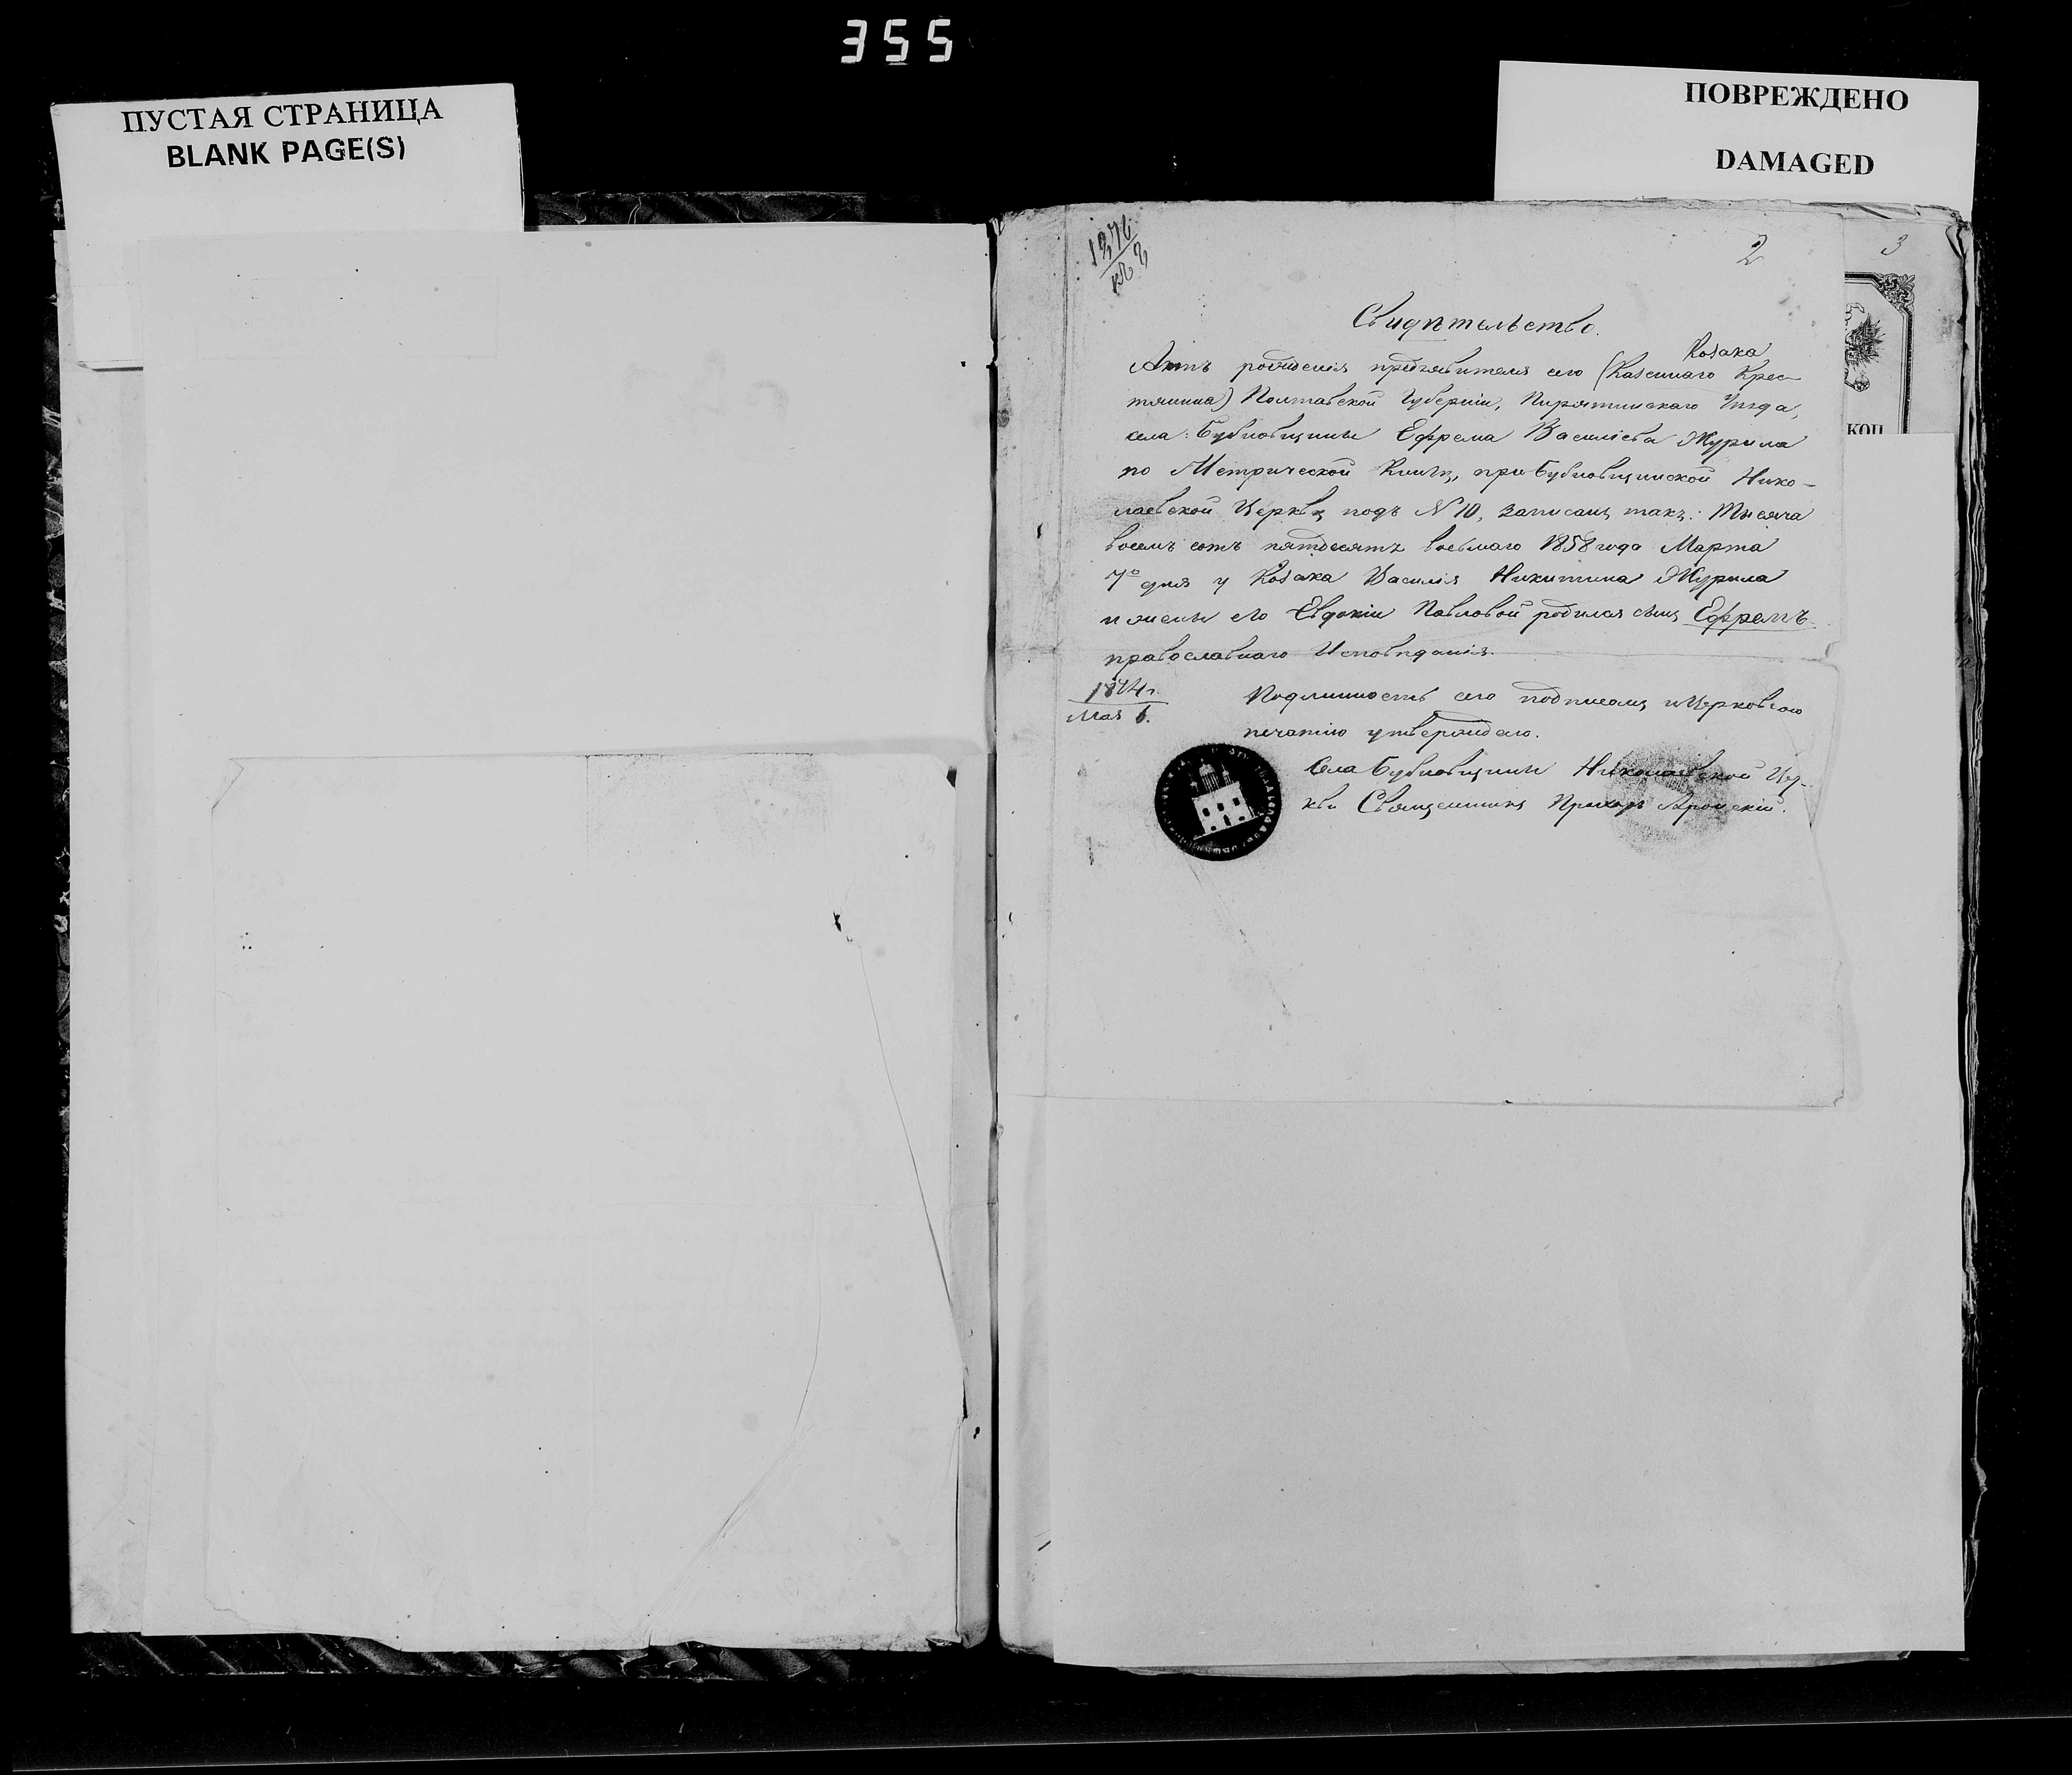 355
ПУСТАЯ СТРАНИЦА
BLANK PAGE(S)
ПОВРЕЖДЕНО
DAMAGED
2
3
КОП
Свидѣтельство.
Козака
Актъ рожденія предъявителя сего (Казеннаго Крес-
тянина) Полтавской Губерніи, Пирятинскаго Уѣзда,
села Бубновщины Ефрема Васильева Журила
по Метрической Книгѣ, при Бубновщинской Нико-
лаевской Церквѣ подъ N 10, записанъ такъ: Тысяча
восемь сотъ пятдесятъ восьмаго 1858 года Марта
7го дня у Козака Василія Никитина Журила
и жены его Евдокіи Павловой родился сынъ Ефремъ
православнаго Исповѣданія.
1874 г.
Мая 6.
Подлинность сего подписомъ и Церковною
печатію утверждаю.
Села Бубновщины Николаевской Цер-
кви Священникъ Прохоръ